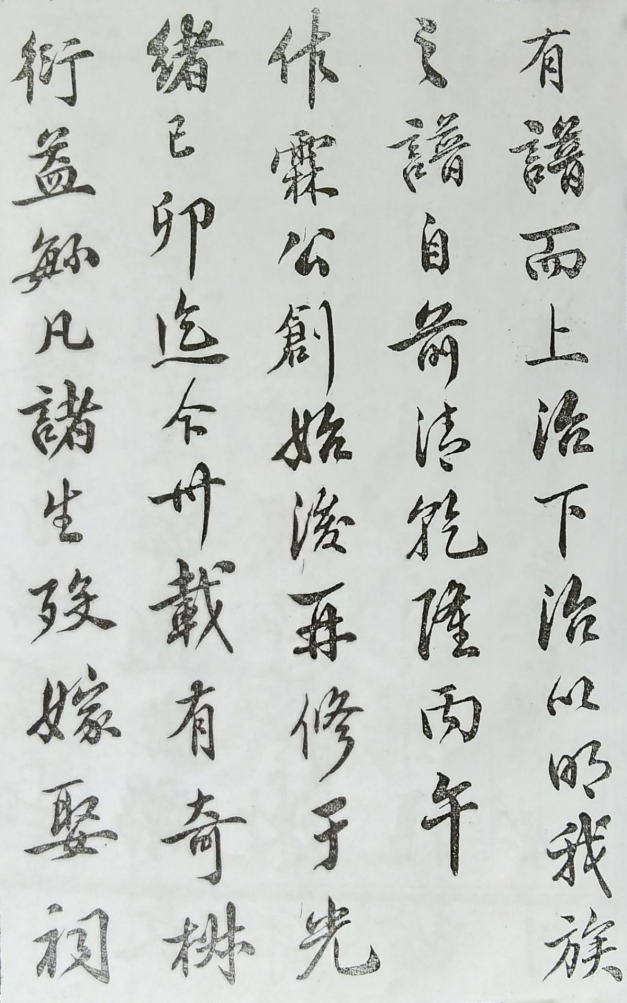 有譜而上治下治以明我族
之譜自前清乾隆丙午
作霖公創始後再修于光
緒己卯迄今卅載有奇椒
衍益緐凡諸生歿嫁娶祠